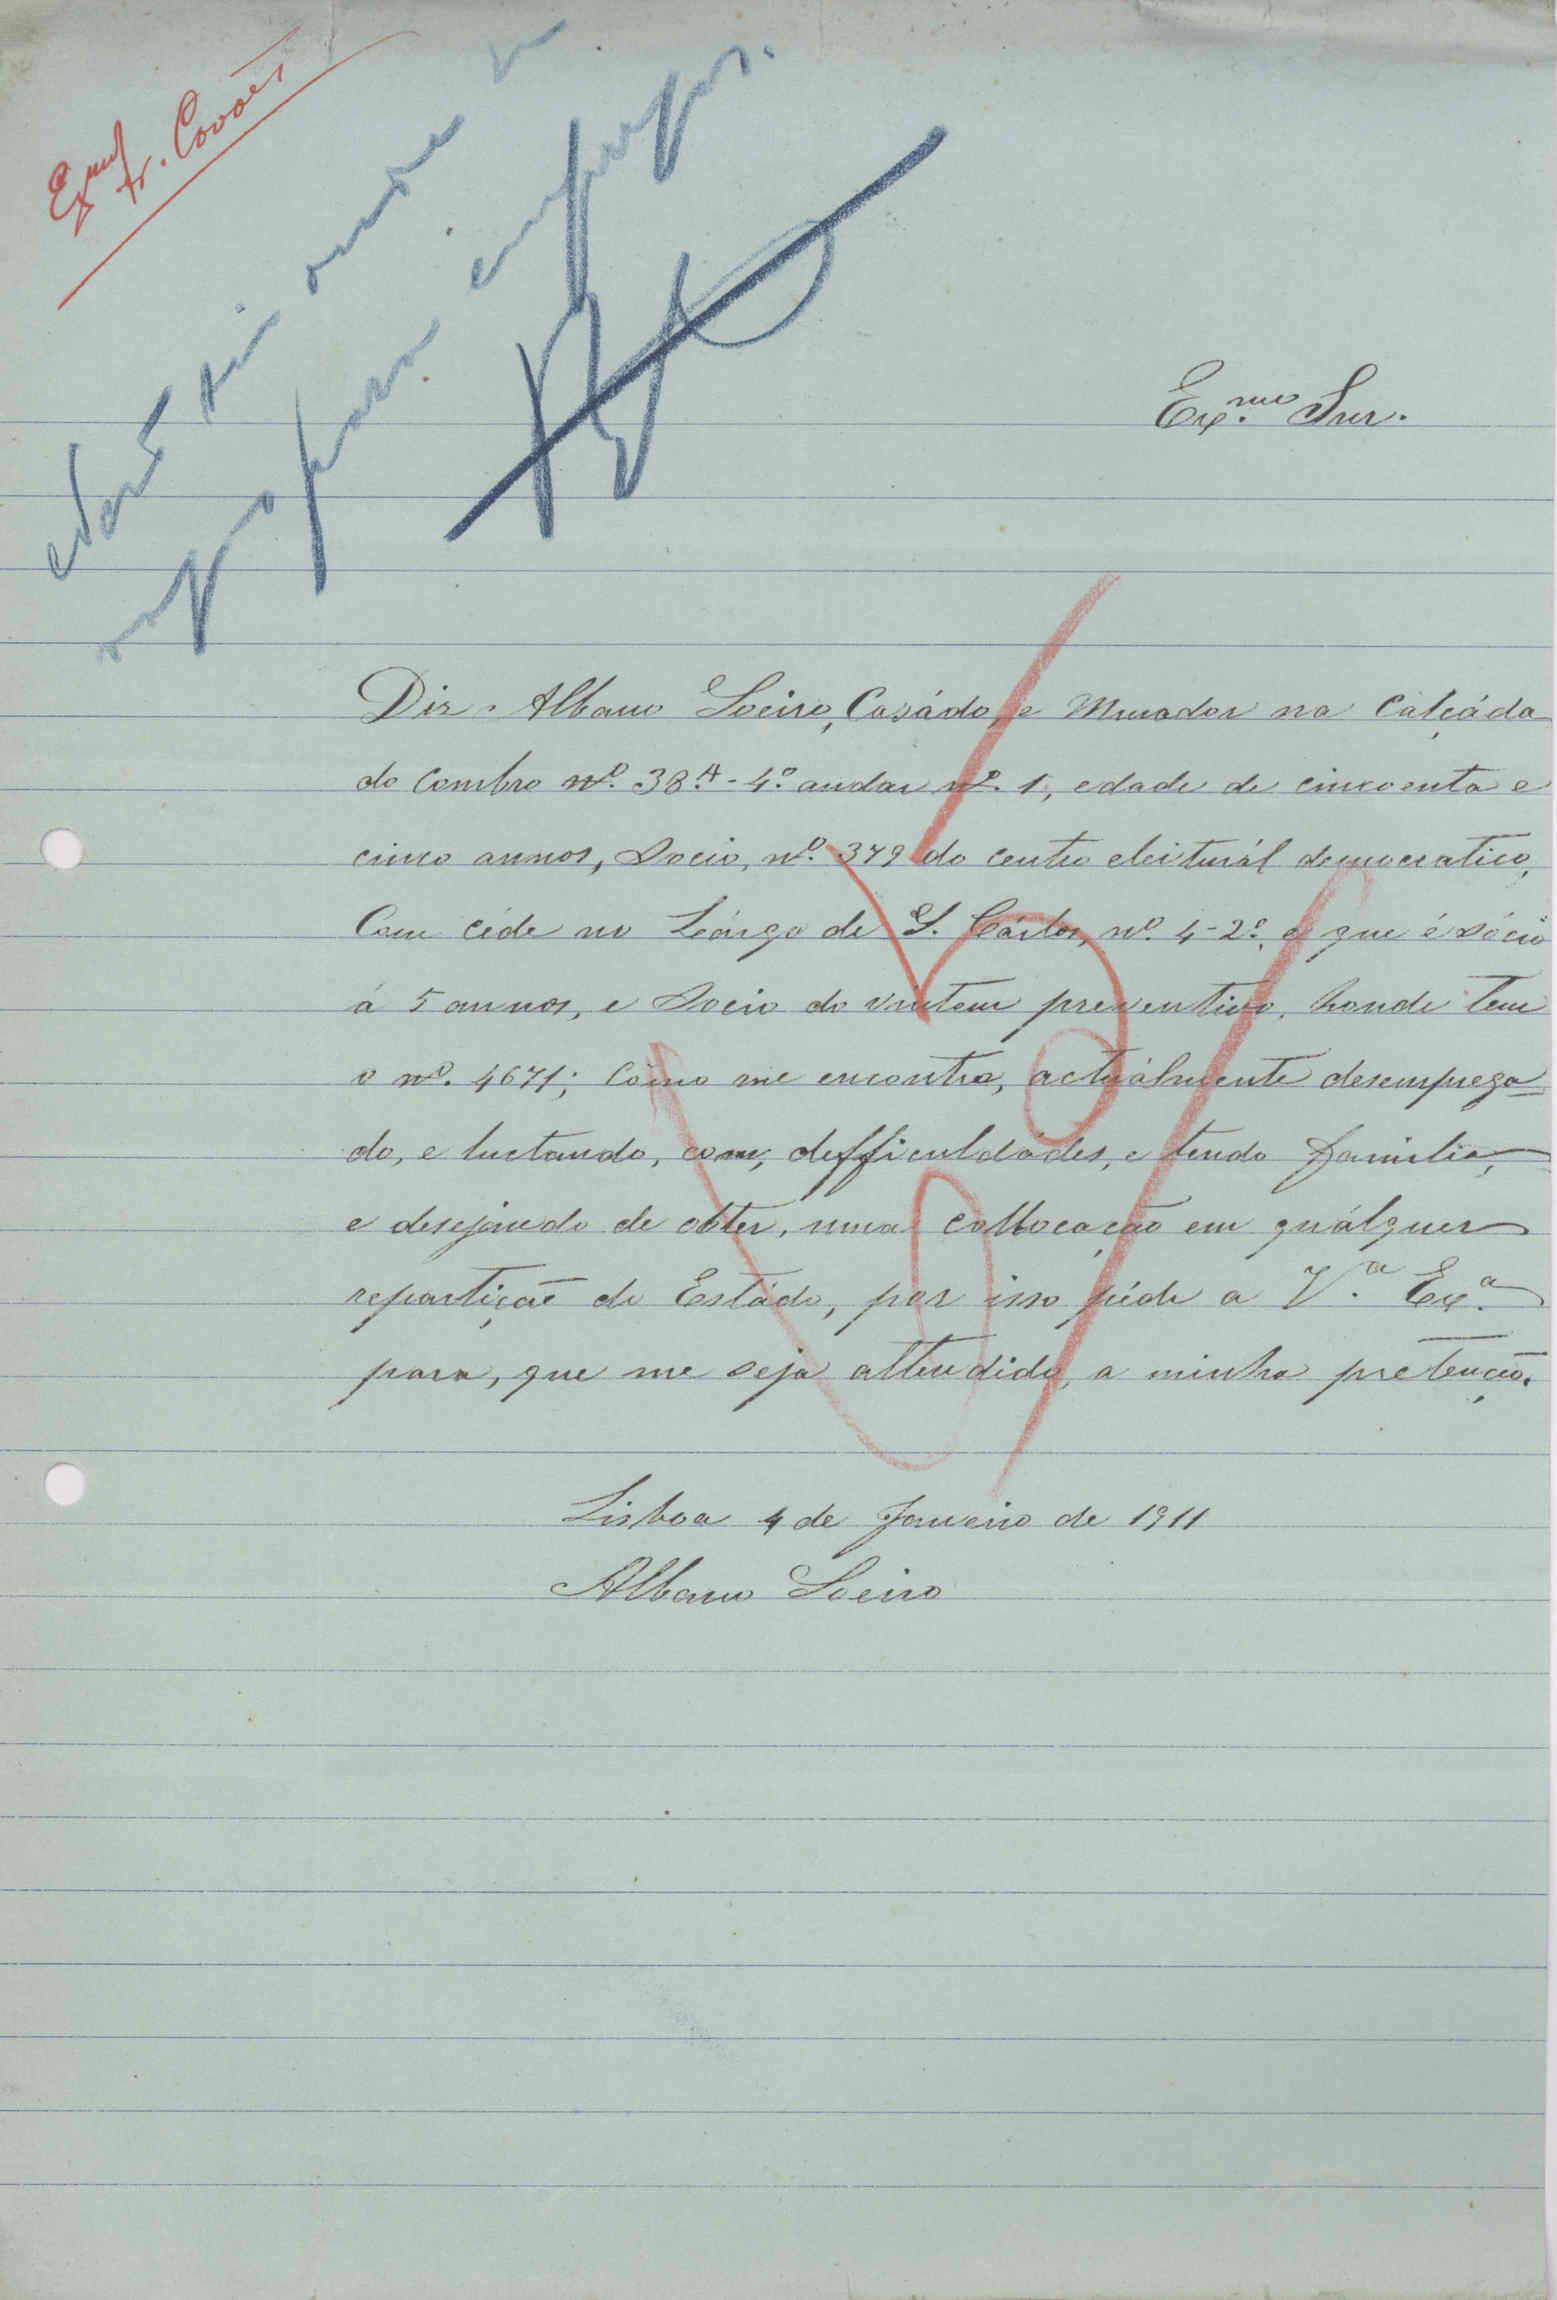 Exmo Sr. Covões
para
Ex.mo Snr.
Diz Albano Soeiro, Casádo, e Murador na Calçáda
do Combro nº. 38.A - 4.º andar nº. 1, edade de cincoenta e
cinco annos, Socio, nº. 379 do centro eleiturál democratico,
Com céde no Lárgo de S. Cárlos, nº. 4-2º, e que é sócio
á 5 annos, e Socio do vintem preventivo, honde tem
o nº. 4671; como me encontro, actuálmente desemprega-
do, e luctando, com, defficuldádes, e tendo familia,
e desejando de obter, uma collocação em quálquer
repartição do Estádo, por isso péde a V.ª Ex.ª
para, que me seja attendido, a minha pretenção.
Lisboa 4 de Janeiro de 1911
Albano Soeiro